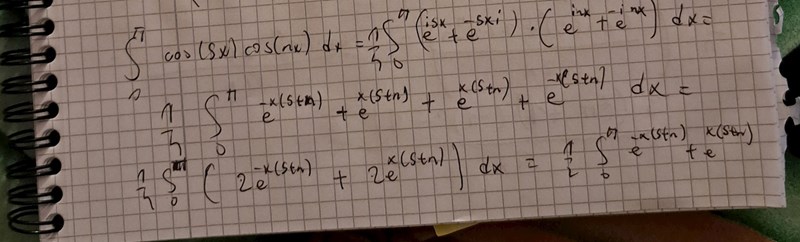 ∫₀^π cos(5x) cos(nx) dx = 1/4 ∫₀^π (e^{i5x} + e^{-5xi}) · (e^{inx} + e^{-inx}) dx =
1/4 ∫₀^π e^{-x(5+n)} + e^{x(5+n)} + e^{x(5+n)} + e^{-x(5+n)} dx =
1/4 ∫₀^π (2e^{-x(5+n)} + 2e^{x(5+n)}) dx = 1/2 ∫₀^π e^{-x(5+n)} + e^{x(5+n)}